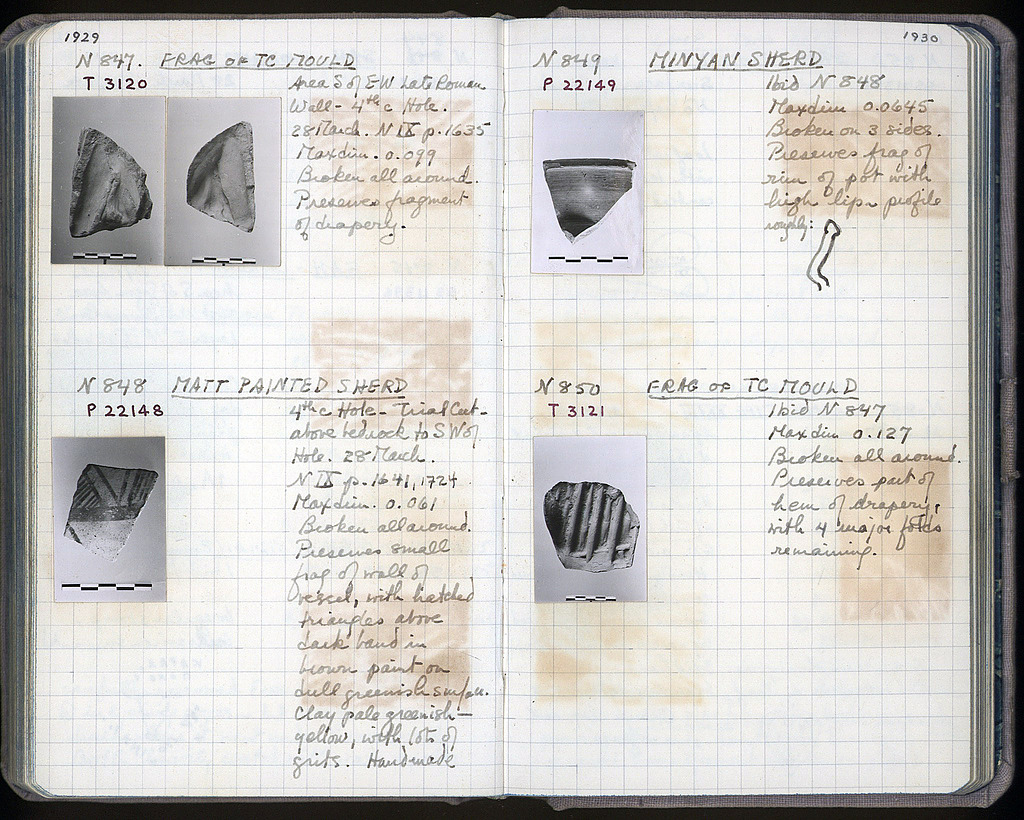 1929
N 847. FRAG OF TC MOULD
T 3120
Area S of E-W Late Roman
Wall - 4th c Hole.
28 March. N IX p. 1635
Max dim. 0.099
Broken all around.
Preserves fragment
of drapery.
N 848 MATT PAINTED SHERD
P 22148
4th c Hole - Trial Cut -
above bedrock to SW of
Hole. 28 March.
N IX p. 1641, 1724
Max dim. 0.061
Broken all around.
Preserves small
frag of wall of
vessel, with hatched
triangles above
dark band in
brown paint on
dull greenish surface.
Clay pale greenish -
yellow, with lots of
grits. Handmade
1930
N 849 MINYAN SHERD
P 22149
Ibid N 848
Max dim 0.0645
Broken on 3 sides.
Preserves frag of
rim of pot with
high lip profile
roughly:
N 850 FRAG OF TC MOULD
T 3121
Ibid N 847
Max dim 0.127
Broken all around.
Preserves part of
hem of drapery,
with 4 major folds
remaining.